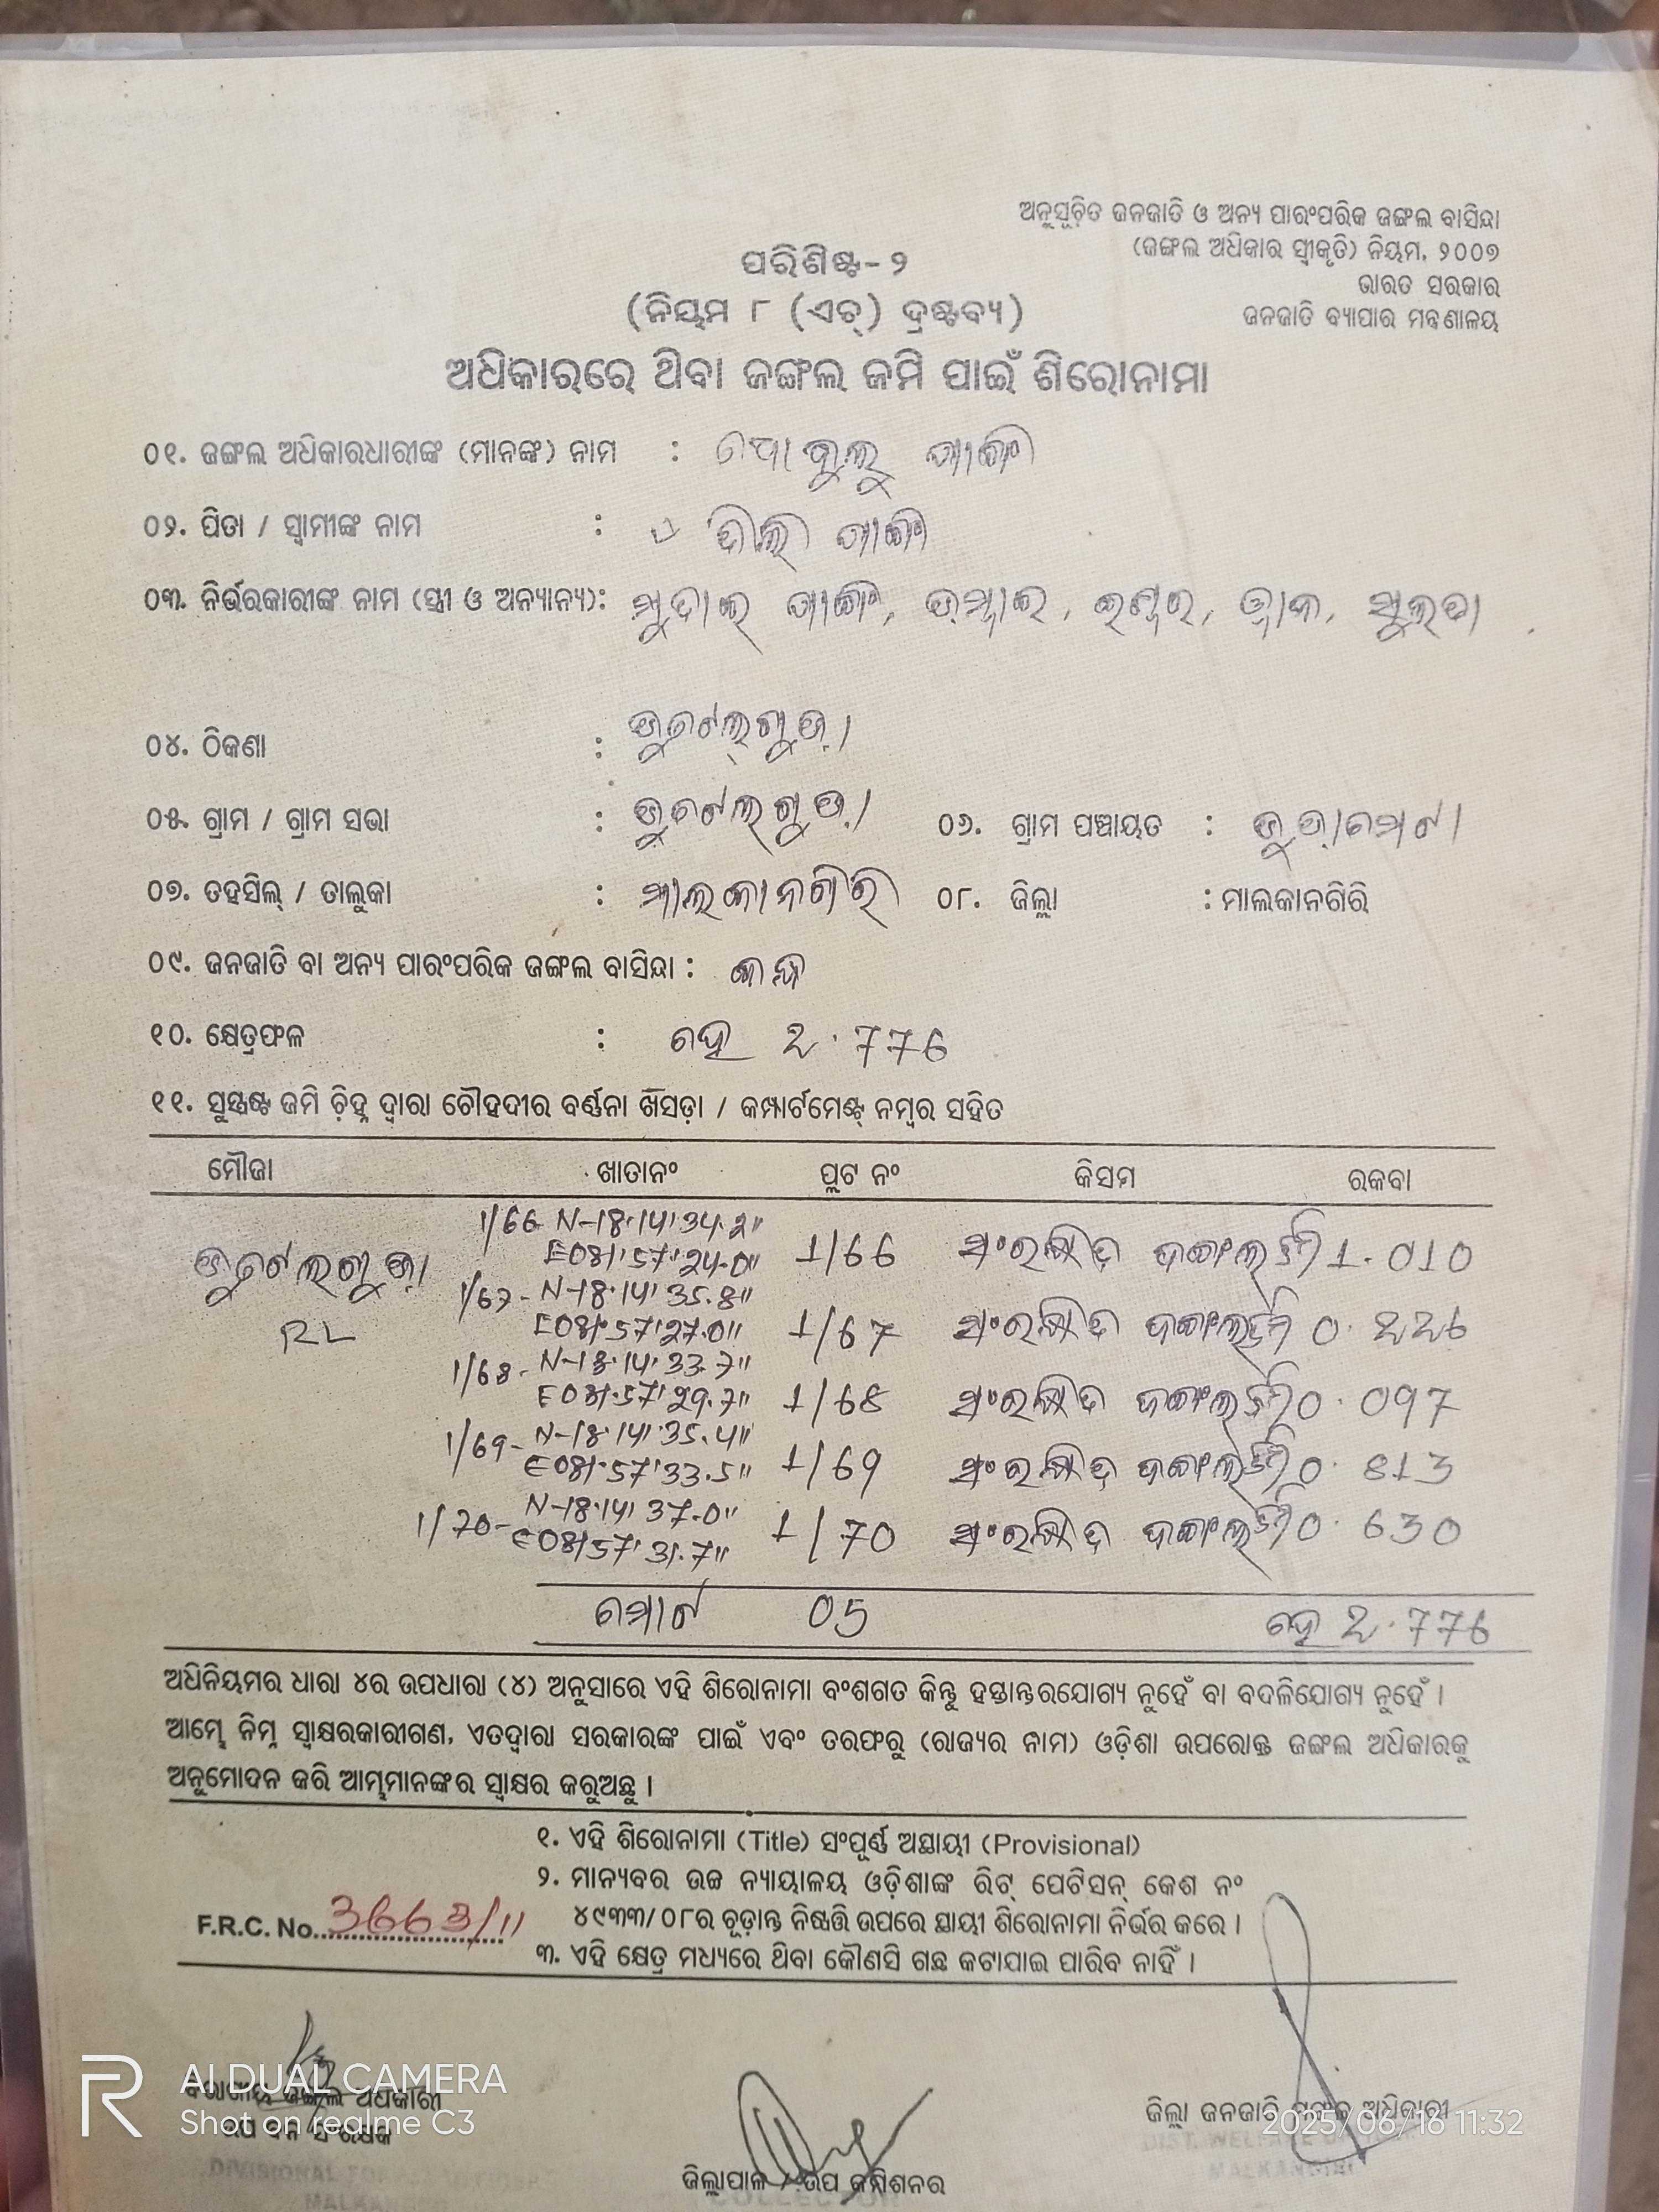 ଅନୁସୂଚିତ ଜନଜାତି ଓ ଅନ୍ୟ ପାରଂପରିକ ଜଙ୍ଗଲ ବାସିନ୍ଦା
(ଜଙ୍ଗଲ ଅଧିକାର ସ୍ୱୀକୃତି) ନିୟମ, ୨୦୦୭
ଭାରତ ସରକାର
ଜନଜାତି ବ୍ୟାପାର ମନ୍ତ୍ରଣାଳୟ
ପରିଶିଷ୍ଟ-୨
(ନିୟମ ୮ (ଏଚ୍) ଦ୍ରଷ୍ଟବ୍ୟ)
ଅଧିକାରରେ ଥିବା ଜଙ୍ଗଲ ଜମି ପାଇଁ ଶିରୋନାମା
୦୧. ଜଙ୍ଗଲ ଅଧିକାରଧାରୀଙ୍କ (ମାନଙ୍କ) ନାମ :
୦୨. ପିତା / ସ୍ୱାମୀଙ୍କ ନାମ :
୦୩. ନିର୍ଭରକାରୀଙ୍କ ନାମ (ସ୍ତ୍ରୀ ଓ ଅନ୍ୟାନ୍ୟ):
୦୪. ଠିକଣା :
୦୫. ଗ୍ରାମ / ଗ୍ରାମ ସଭା : ୦୬. ଗ୍ରାମ ପଞ୍ଚାୟତ :
୦୭. ତହସିଲ୍ / ତାଲୁକା : ମାଲକାନଗିରି ୦୮. ଜିଲ୍ଲା : ମାଲକାନଗିରି
୦୯. ଜନଜାତି ବା ଅନ୍ୟ ପାରଂପରିକ ଜଙ୍ଗଲ ବାସିନ୍ଦା :
୧୦. କ୍ଷେତ୍ରଫଳ : ହେ 2.776
୧୧. ସୁସ୍ପଷ୍ଟ ଜମି ଚିହ୍ନ ଦ୍ୱାରା ଚୌହଦୀର ବର୍ଣ୍ଣନା ଖସଡ଼ା / କମ୍ପାର୍ଟମେଣ୍ଟ୍ ନମ୍ବର ସହିତ
ମୌଜା ଖାତାନଂ ପ୍ଲଟ ନଂ କିସମ ରକବା
1/66- N-18°14'34.2"
E081°57'24.0" 1/66 ସଂରକ୍ଷିତ ଜଙ୍ଗଲ ଜମି 1.010
1/67- N-18°14'35.8"
RL E081°57'27.0" 1/67 ସଂରକ୍ଷିତ ଜଙ୍ଗଲ ଜମି 0.226
1/68- N-18°14'33.7"
E081°57'29.7" 1/68 ସଂରକ୍ଷିତ ଜଙ୍ଗଲ ଜମି 0.097
1/69- N-18°14'35.4"
E081°57'33.5" 1/69 ସଂରକ୍ଷିତ ଜଙ୍ଗଲ ଜମି 0.813
1/70- N-18°14'37.0"
E081°57'31.7" 1/70 ସଂରକ୍ଷିତ ଜଙ୍ଗଲ ଜମି 0.630
ମୋଟ 05 ହେ 2.776
ଅଧିନିୟମର ଧାରା ୪ର ଉପଧାରା (୪) ଅନୁସାରେ ଏହି ଶିରୋନାମା ବଂଶଗତ କିନ୍ତୁ ହସ୍ତାନ୍ତରଯୋଗ୍ୟ ନୁହେଁ ବା ବଦଳିଯୋଗ୍ୟ ନୁହେଁ ।
ଆମ୍ଭେ ନିମ୍ନ ସ୍ୱାକ୍ଷରକାରୀଗଣ, ଏତଦ୍ଦ୍ୱାରା ସରକାରଙ୍କ ପାଇଁ ଏବଂ ତରଫରୁ (ରାଜ୍ୟର ନାମ) ଓଡ଼ିଶା ଉପରୋକ୍ତ ଜଙ୍ଗଲ ଅଧିକାରକୁ
ଅନୁମୋଦନ କରି ଆମ୍ଭମାନଙ୍କର ସ୍ୱାକ୍ଷର କରୁଅଛୁ ।
୧. ଏହି ଶିରୋନାମା (Title) ସଂପୂର୍ଣ୍ଣ ଅସ୍ଥାୟୀ (Provisional)
୨. ମାନ୍ୟବର ଉଚ୍ଚ ନ୍ୟାୟାଳୟ ଓଡ଼ିଶାଙ୍କ ରିଟ୍ ପେଟିସନ୍ କେଶ ନଂ
୪୯୩୩/୦୮ର ଚୂଡ଼ାନ୍ତ ନିଷ୍ପତ୍ତି ଉପରେ ସ୍ଥାୟୀ ଶିରୋନାମା ନିର୍ଭର କରେ ।
F.R.C. No. 3663/11
୩. ଏହି କ୍ଷେତ୍ର ମଧ୍ୟରେ ଥିବା କୌଣସି ଗଛ କଟାଯାଇ ପାରିବ ନାହିଁ ।
AI DUAL CAMERA
Shot on realme C3
ଜଙ୍ଗଲ ଅଧିକାରୀ
ଉପ ବନ ସଂରକ୍ଷକ
ଜିଲ୍ଲା ଜନଜାତି ମଙ୍ଗଳ ଅଧିକାରୀ
2025/06/16 11:32
MALKANGIRI
ଜିଲ୍ଲାପାଳ / ଉପ କମିଶନର
COLLECTOR